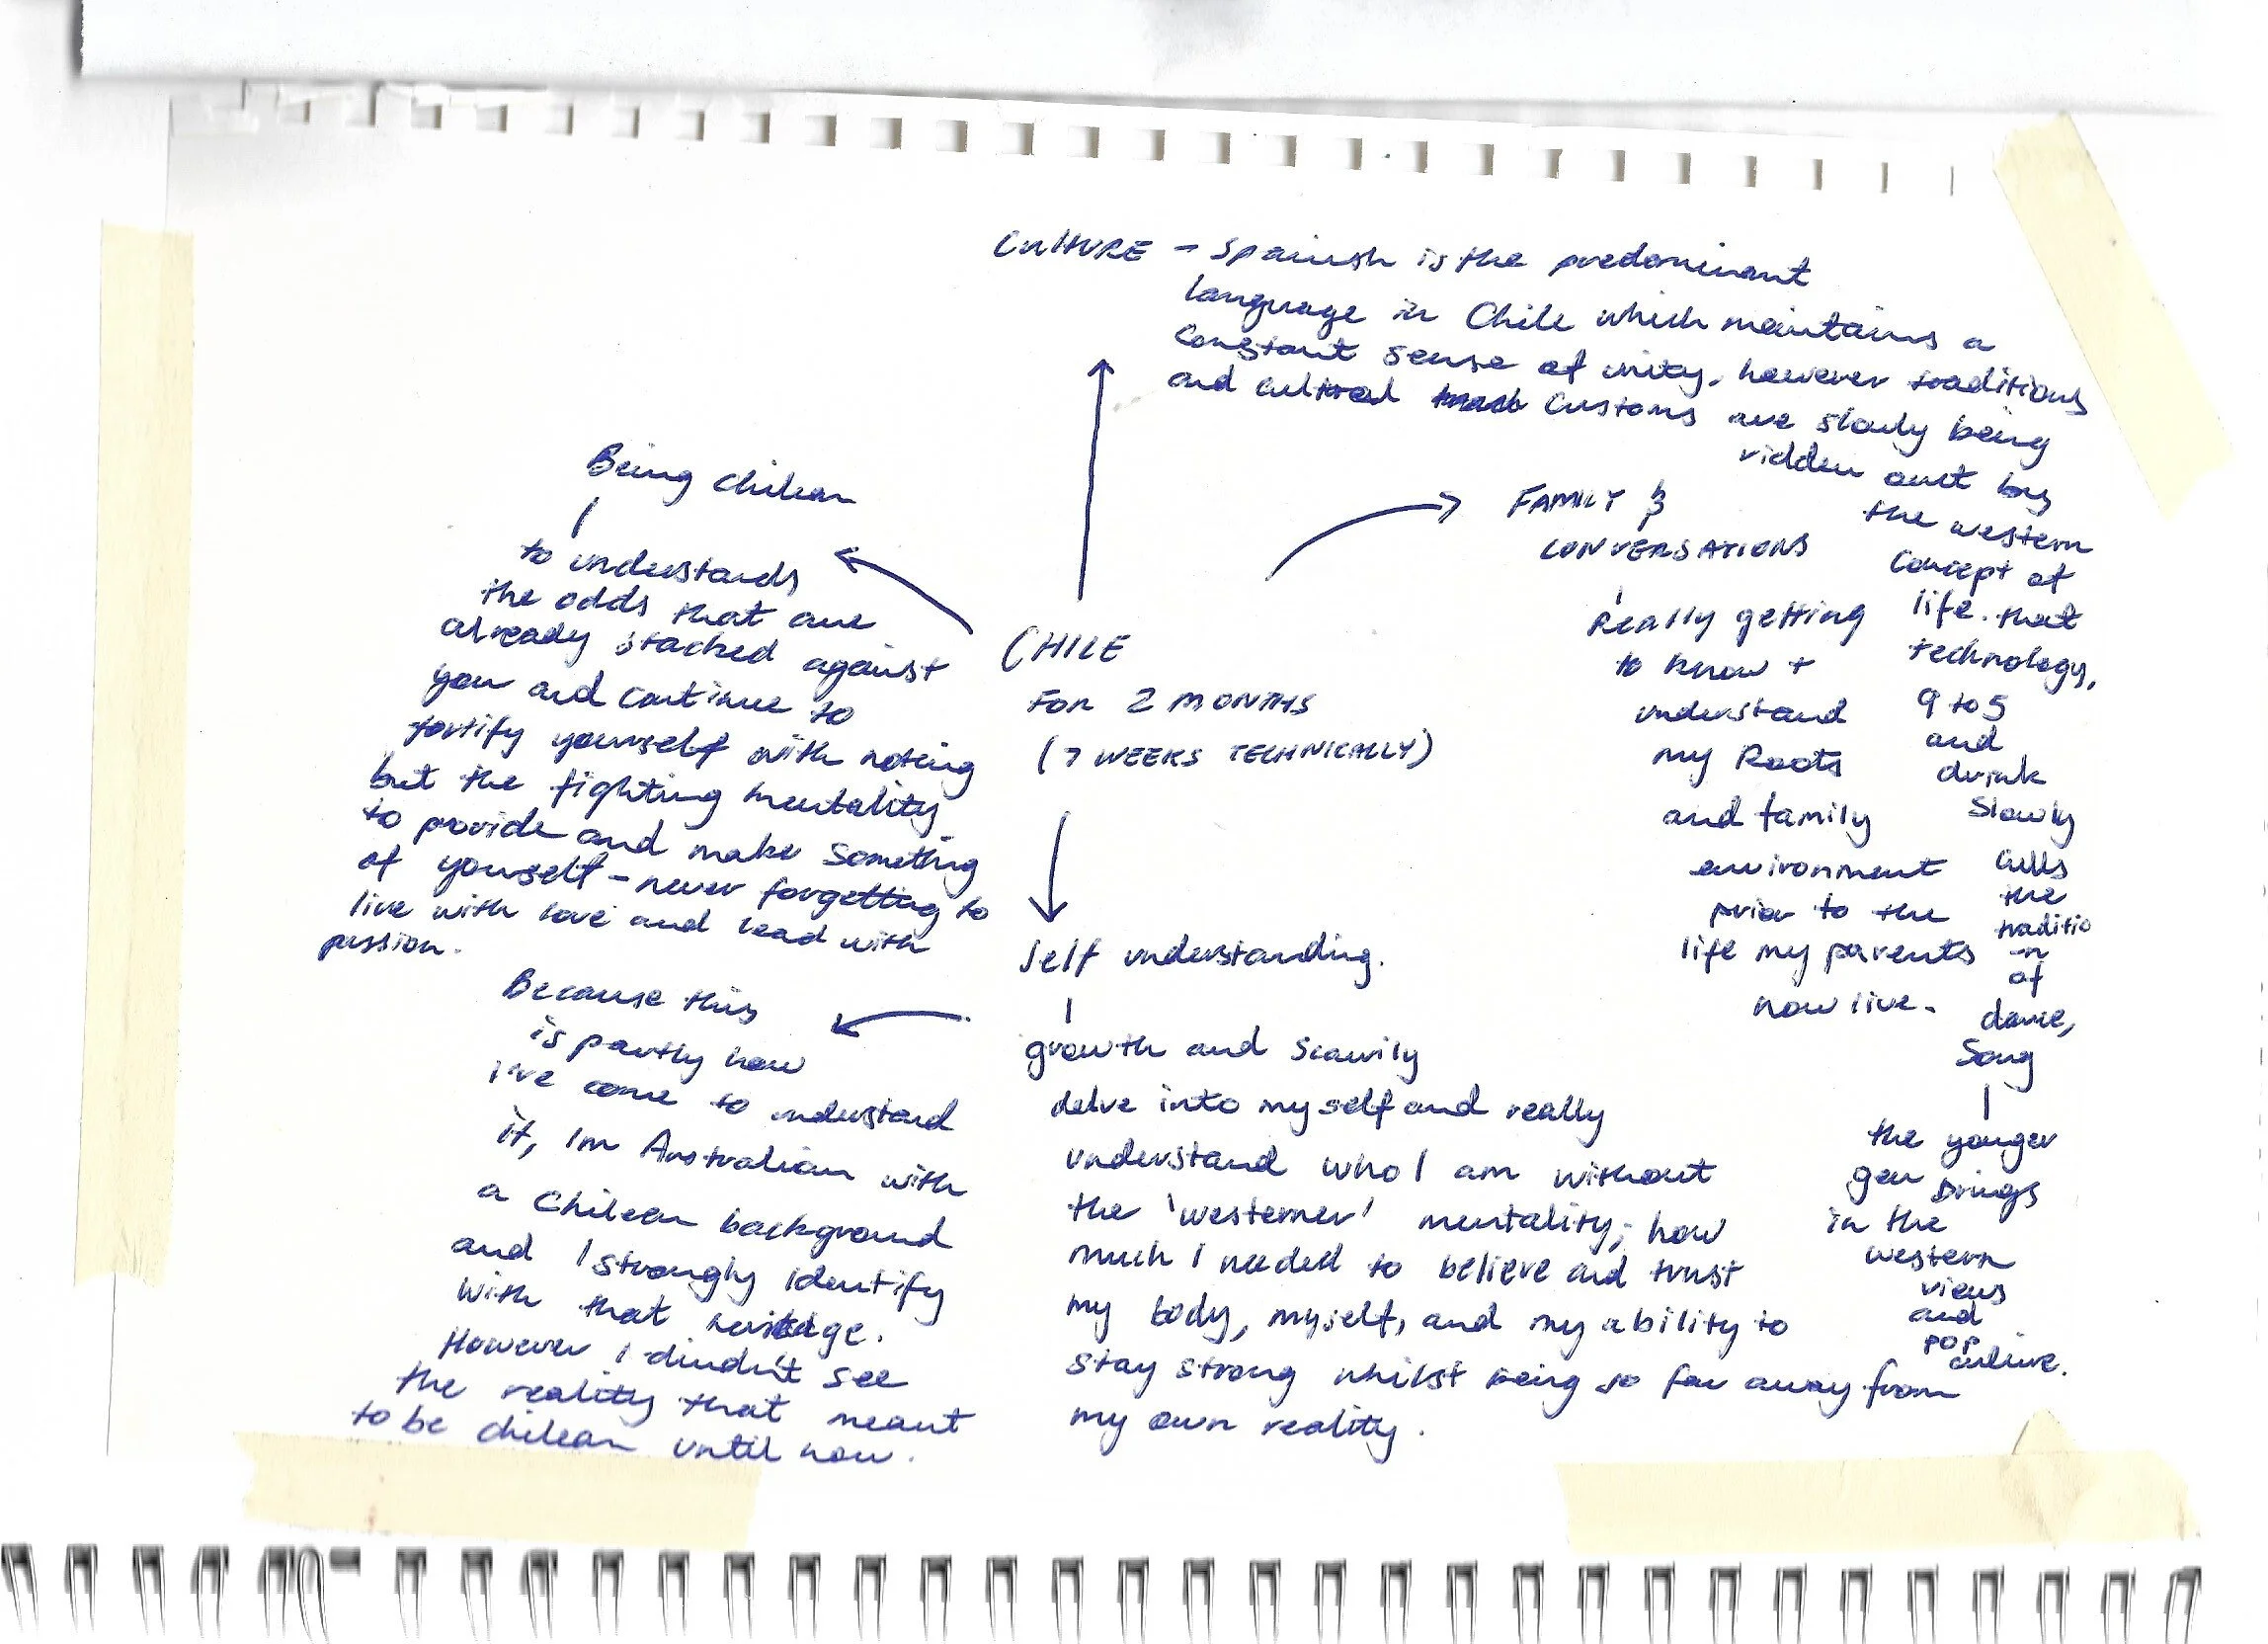 CULTURE - Spanish is the predominant
language in Chile which maintains a
constant sense of unity. however traditions
and cultral customs are slowly being
ridden out by
the western
concept of
life. that
technology,
9 to 5
and
drink
slowly
culls
the
traditio
-n
of
dance,
Song
the yonger
gen brings
in the
western
views
and
pop
culture.
FAMILY &
CONVERSATIONS
Really getting
to know +
understand
my Roots
and family
environment
prior to the
life my parents
now live.
Being chilean
to understands
the odds that are
already stacked against
you and continue to
fortify yourself with noting
but the fighting mentality
to provide and make something
of yourself - never forgetting to
live with love and lead with
passion.
CHILE
FOR 2 MONTHS
(7 WEEKS TECHNICALLY)
Self understanding.
growth and
delve into myself and really
understand who I am without
the 'westerner' mentality; how
much I needed to believe and trust
my body, myself, and my ability to
stay strong whilst being so far away from
my own reality.
Because this
is partly how
I've come to understand
it, Im Australian with
a Chilean background
and I strongly identify
with that
However I dindn't see
the reality that meant
to be chilean until now.